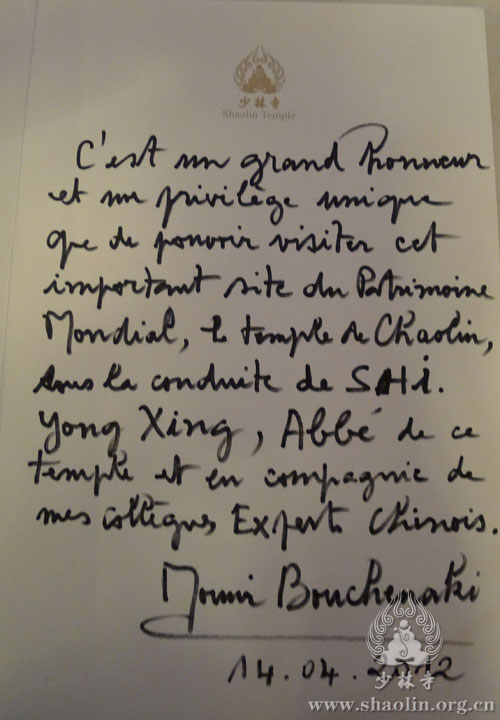 少林寺
Shaolin Temple
C'est un grand honneur
et un privilège unique
que de pouvoir visiter cet
important site du Patrimoine
Mondial, le temple de Chaolin,
sous la conduite de SHi.
Yong Xing, Abbé de ce
temple et en compagnie de
mes collègues Experts Chinois.
Mounir Bouchenaki
14.04.2012
少林寺
www.shaolin.org.cn